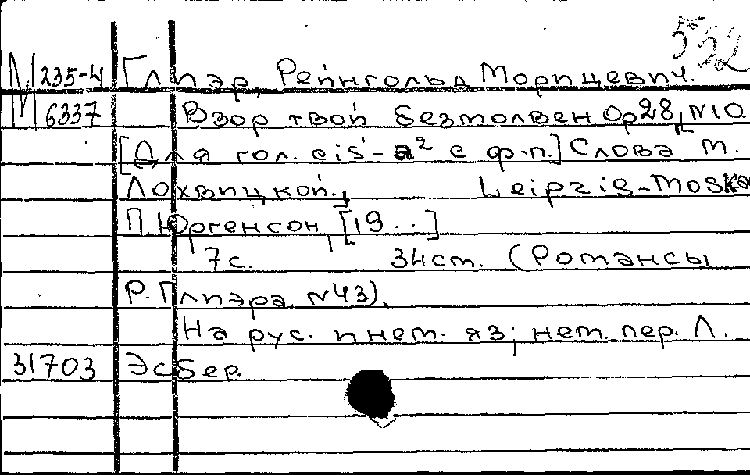 532
М 235-4 Глиэр, Рейнгольд Морицевич.
М 6337 Взор твой безмолвен Ор 28, N10
[Для гол. cis'-a² с ф-п.] Слова М.
Лохвицкой., Leipzig-Moskau
П. Юргенсон, [19..]
7 с. 34 cm. (Романсы
Р. Глиэра N43).
На рус. и нем. яз; нем. пер. Л.
31703 Эсбер.